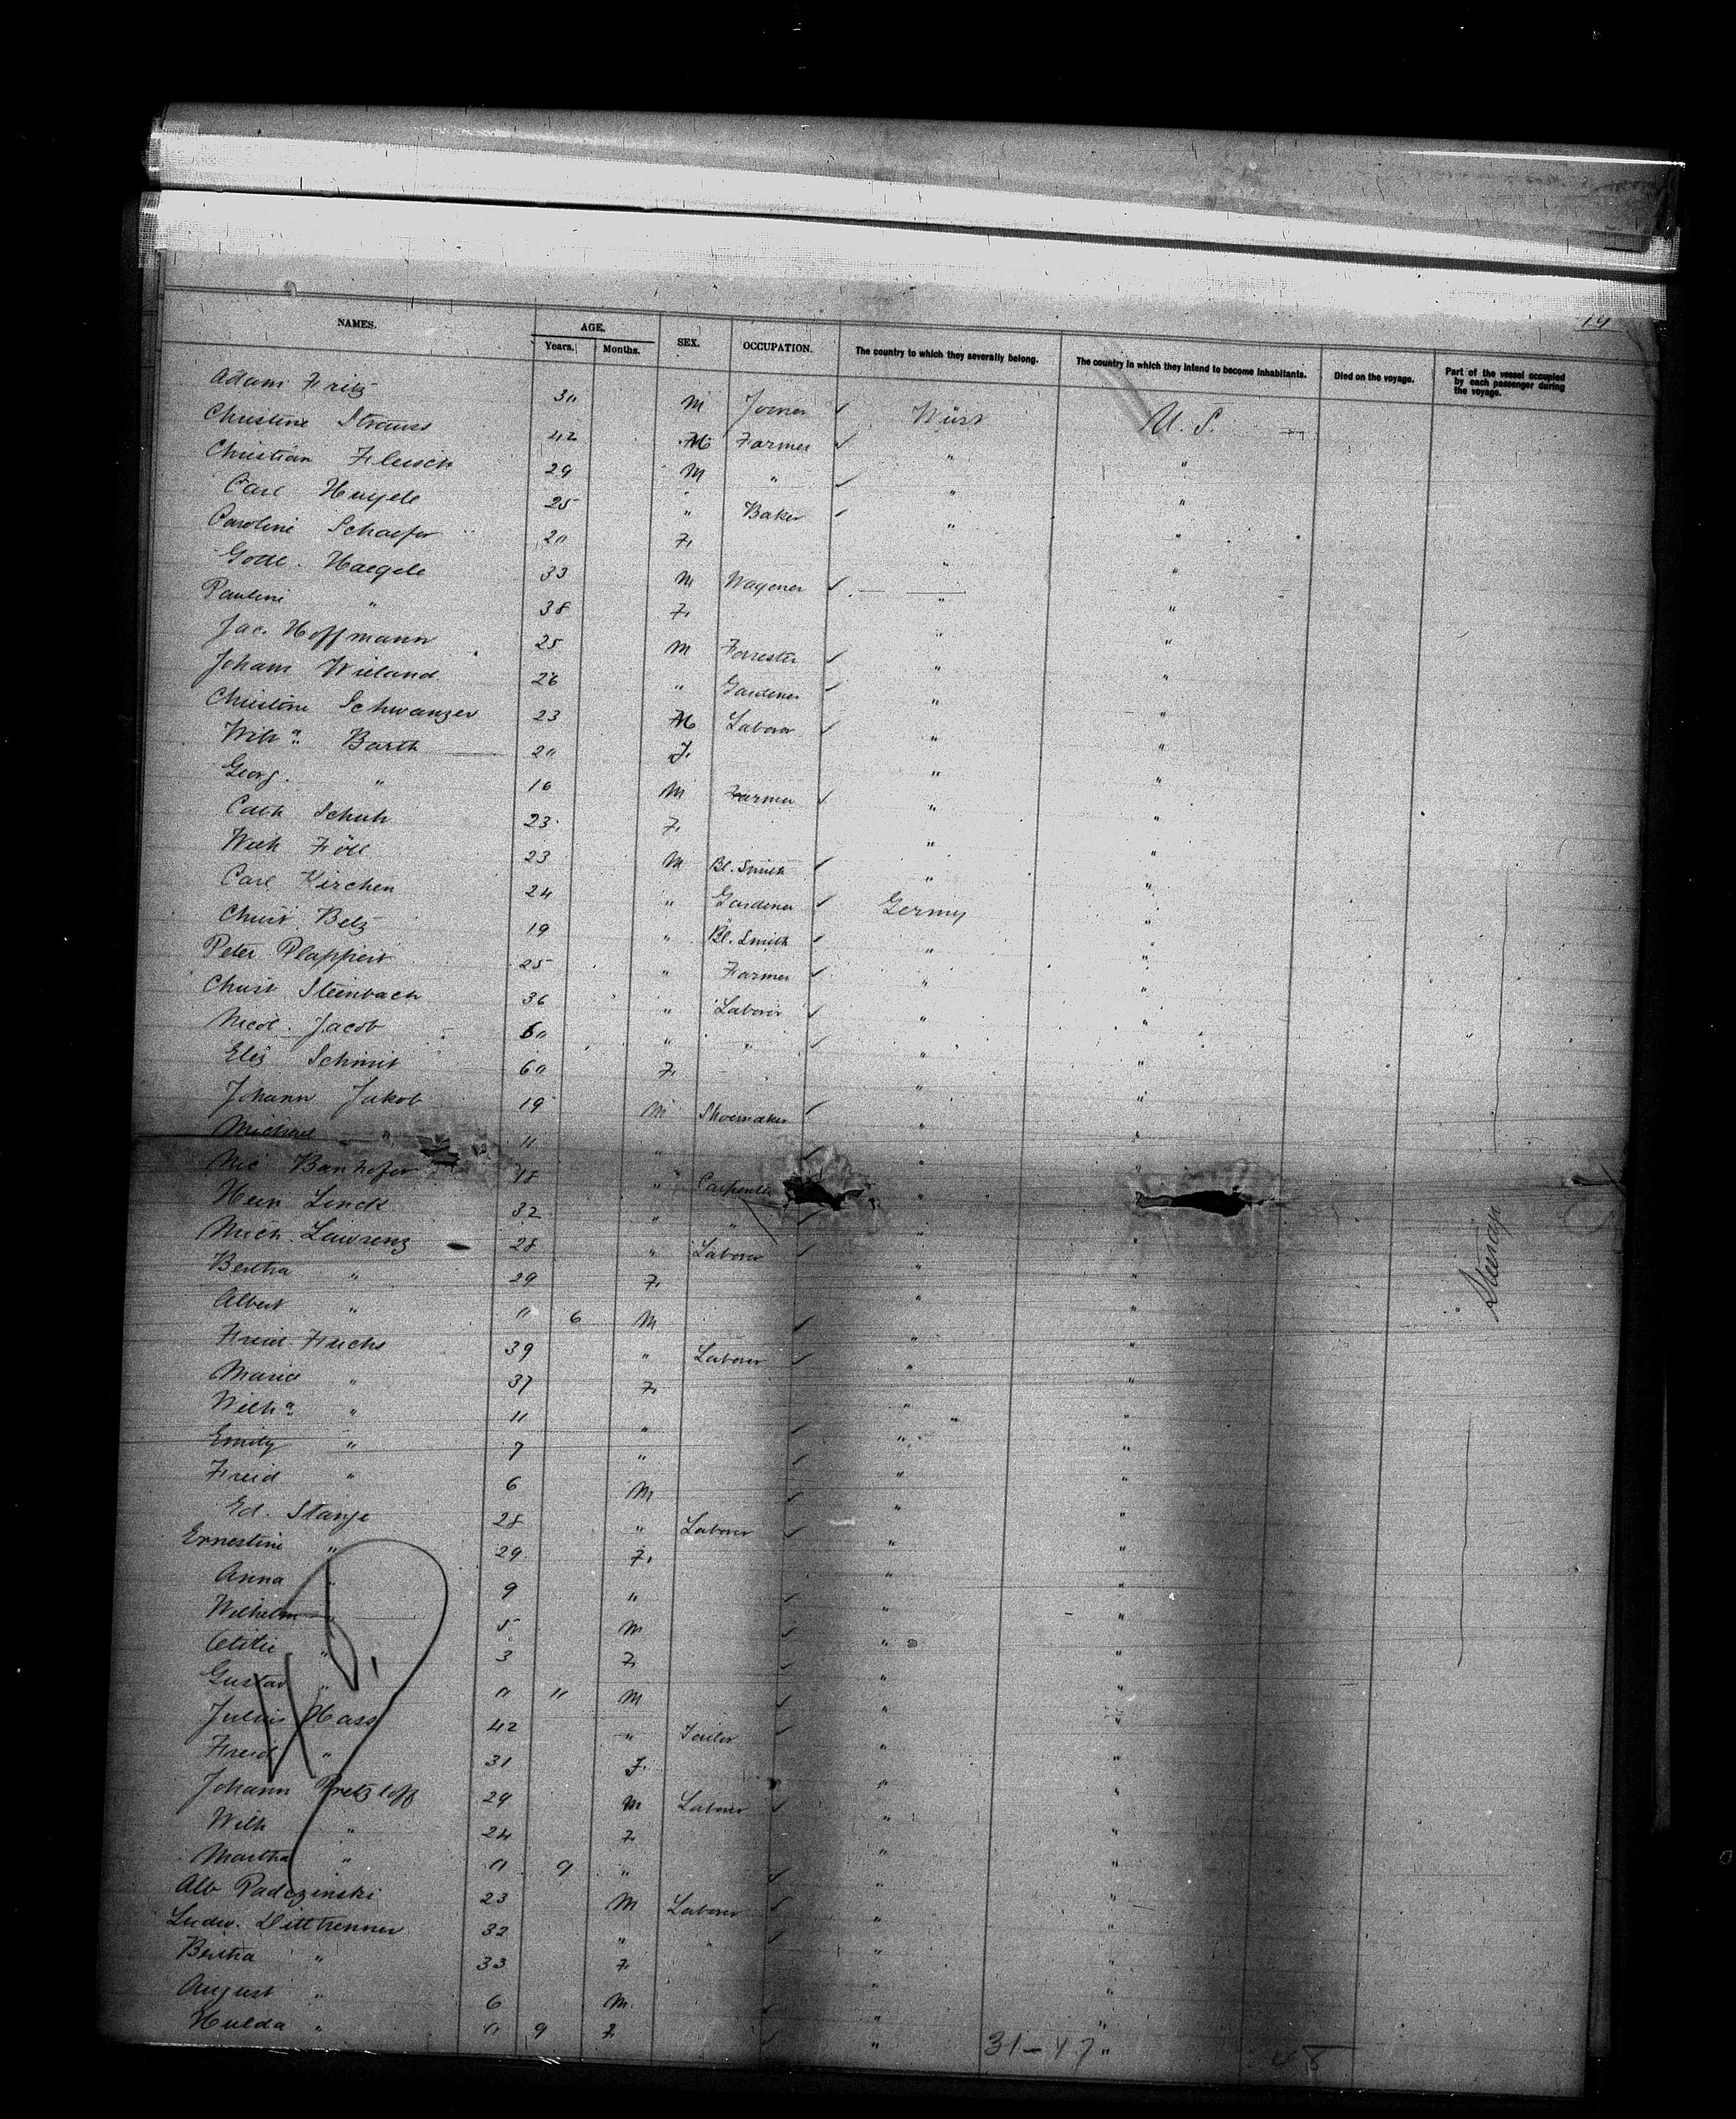 14
NAMES. AGE. SEX. OCCUPATION. The country to which they severally belong. The country in which they intend to become inhabitants. Died on the voyage. Part of the vessel occupied by each passenger during the voyage.
Years. Months.
Adam Fritz 30 M Joiner ✓ Würt U. S.
Christine Strauss 42 M Farmer ✓ " "
Christian Fleisch 29 M " ✓ " "
Carl Hugele 25 " Baker ✓ " "
Caroline Schaefer 20 F. " "
Gottl. Haegele 33 M Wagoner ✓ " "
Pauline " 38 F. " "
Jac. Hoffmann 25 M Forrester ✓ " "
Johann Wieland 26 " Gardener ✓ " "
Christine Schwanzer 23 M Laborer ✓ " "
Wilh.a Barth 20 F. " "
Georg. " 16 M Farmer ✓ " "
Cath Schuh 23 F. " "
Wilh Föll 23 M Bl. Smith ✓ " "
Carl Kirchen 24 " Gardener ✓ Germy "
Christ Belz 19 " Bl. Smith ✓ " "
Peter Plappert 25 " Farmer ✓ " "
Christ Steinbach 36 " Laborer ✓ " "
Nicol. Jacob 60 " " ✓ " "
Elis Schmit 60 F. " "
Johann Jakob 19 M Shoemaker ✓ " "
Michael " 11 " ✓ " "
Nic Banhofer 18 " Carpenter " "
Hein Linck 32 " " ✓ " "
Mich. Lawrenz 28 " Laborer ✓ " "
Bertha " 29 F. " "
Albert " 0 6 M ✓ " "
Freid. Fuchs 39 " Laborer ✓ " "
Maria " 37 F. " "
Wilh.a " 11 " ✓ " "
Emily " 7 " ✓ " "
Freid " 6 M ✓ " "
Ed. Stange 28 " Laborer ✓ " "
Ernestine " 29 F. " "
Anna " 9 " ✓ " "
Wilhelm " 5 M ✓ " "
" 3 F. ✓ " "
Gustav " 0 11 M ✓ " "
Julius Hass 42 " Tailor ✓ " "
Freid " 31 F. " "
Johann Pretzloff 29 M Laborer ✓ " "
Wilh " 24 F. " "
Martha " 0 9 " ✓ " "
Alb Padczinski 23 M Laborer ✓ " "
Ludw. Dittbrenner 32 " " ✓ " "
Bertha " 33 F. " "
August " 6 M. ✓ " "
Hulda " 0 9 F. ✓ " "
Steerage
31-47 48